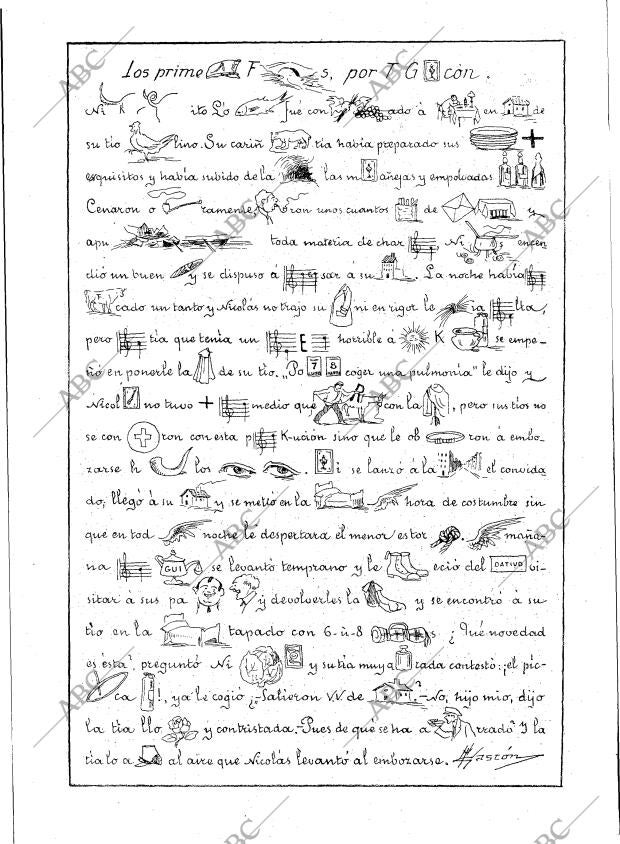 Los prime F s, por T G còn.
Ni K ito Lo fué con ado à en de
su tio lino. Su cariñ tia habia preparado sus +
esquisitos y habia subido de la las m añejas y empolvadas
Cenaron o ramente ron unos cuantos de y
apu toda materia de char Ni encen
dió un buen y se dispuso á sar á su . La noche habia
cado un tanto y Nicolás no trajo su ni en rigor le ia lta,
pero tia que tenia un E horrible á K se empe-
ñó en ponerle la de su tio. "Po 7 8 coger una pulmonía" le dijo y
Nicol no tuvo + medio que con la , pero sus tios no
se con ron con esta p K-ución sino que le ob ron á embo-
zarse h los . i se lanzó á la el convida
do; llegó á su y se metió en la hora de costumbre sin
que en tod noche le despertara el menor estor . maña-
na GUI se levanto temprano y le eció del DATIVO vi-
sitar á sus pa y devolverles la y se encontró á su
tio en la tapado con 6-ù-8 s ¿Qué novedad
es esta? preguntó Ni y su tia muy a rada contestó: ¡el píc-
ca !, ya le cogió ¿-Salieron V.V. de ?-No, hijo mio, dijo
la tia llo y contristada.-Pues de que se ha a rrado? Y la
tia lo a al aire que Nicolás levantó al embozarse. Gascón
ABC